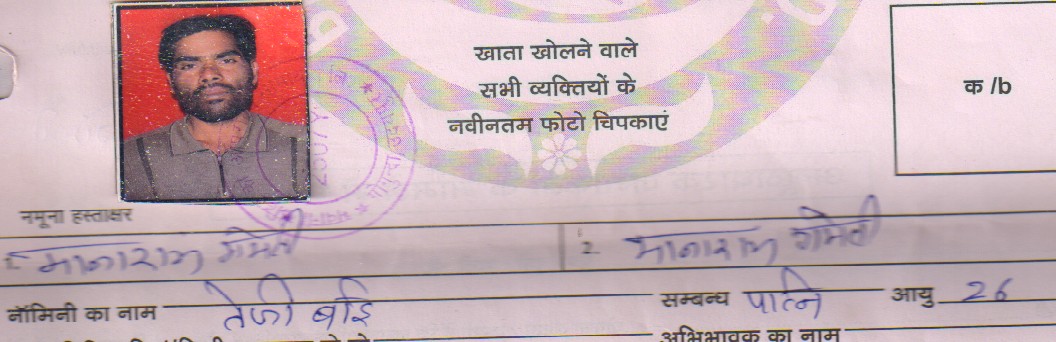 खाता खोलने वाले
सभी व्यक्तियों के
नवीनतम फोटो चिपकाएं
क /b
नमूना हस्ताक्षर
1. मानाराम गमेती 2. मानाराम गमेती
नॉमिनी का नाम तेजी बाई सम्बन्ध पत्नि आयु 26
अभिभावक का नाम